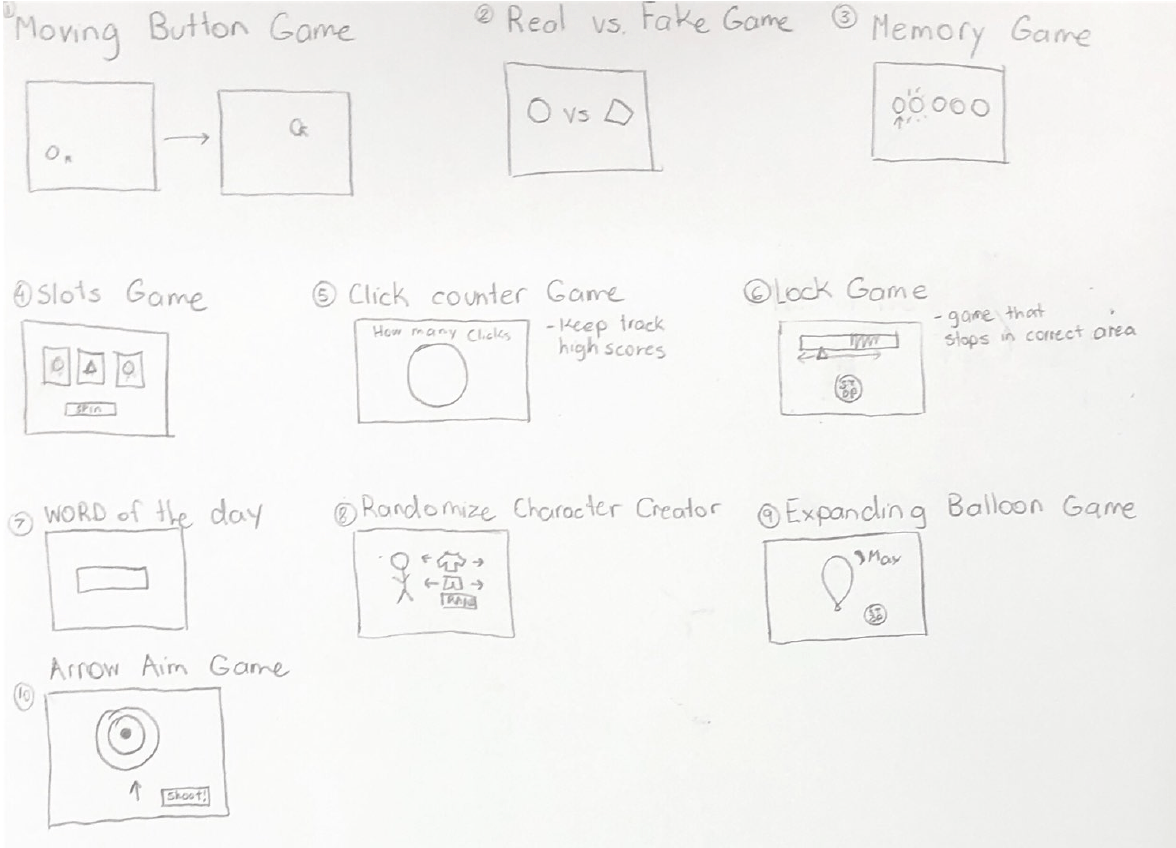 ① Moving Button Game
② Real vs. Fake Game
③ Memory Game
vs
④ Slots Game
SPIN
⑤ Click counter Game
How many Clicks
- Keep track
high scores
⑥ Lock Game
- game that
stops in correct area
ST
OP
⑦ WORD of the day
⑧ Randomize Character Creator
RAND
⑨ Expanding Balloon Game
Max
ST
OP
Arrow Aim Game
⑩
Shoot!